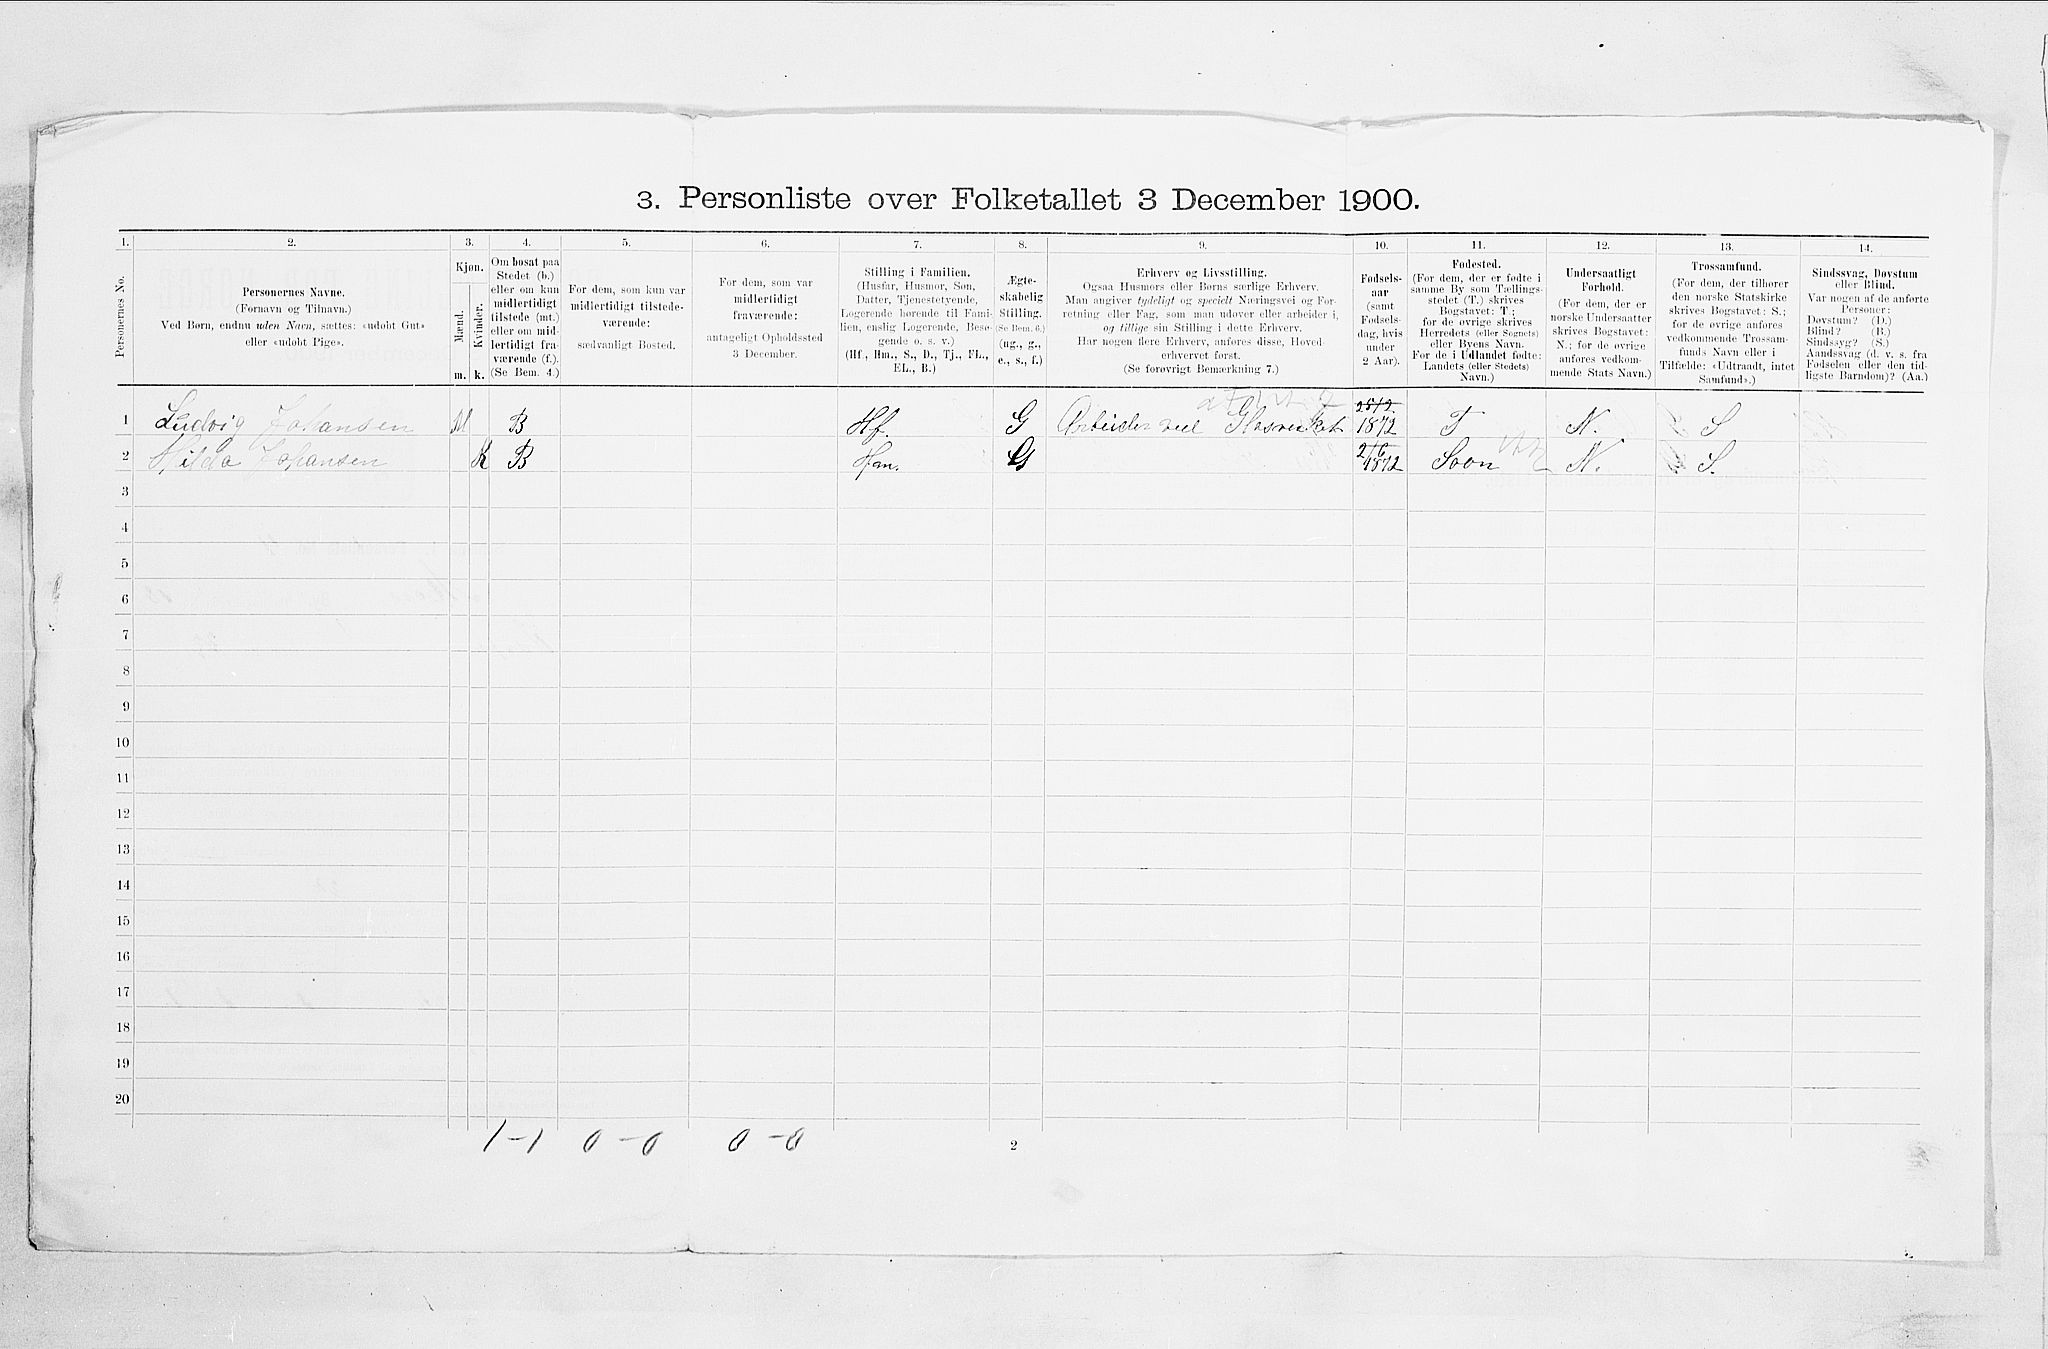 3. Personliste over Folketallet 3 December 1900.
1. 2. 3. 4. 5. 6. 7. 8. 9. 10. 11. 12. 13. 14.
Personernes No.
Personernes Navne.
(Fornavn og Tilnavn.)
Ved Børn, endnu uden Navn, sættes: «udøbt Gut»
eller «udøbt Pige».
Kjøn.
Mænd.
Kvinder.
m. k.
Om bosat paa
Stedet (b.)
eller om kun
midlertidigt
tilstede (mt.)
eller om mid-
lertidigt fra-
værende (f.).
(Se Bem. 4.)
For dem, som kun var
midlertidigt tilstede-
værende:
sædvanligt Bosted.
For dem, som var
midlertidigt
fraværende:
antageligt Opholdssted
3 December.
Stilling i Familien.
(Husfar, Husmor, Søn,
Datter, Tjenestetyende,
Logerende hørende til Fami-
lien, enslig Logerende, Besø-
gende o. s. v.)
(Hf., Hm., S., D., Tj., FL.,
EL., B.)
Ægte-
skabelig
Stilling.
(Se Bem. 6.)
(ug., g.,
e., s., f.)
Erhverv og Livsstilling.
Ogsaa Husmors eller Børns særlige Erhverv.
Man angiver tydeligt og specielt Næringsvei og For-
retning eller Fag, som man udøver eller arbeider i,
og tillige sin Stilling i dette Erhverv.
Har nogen flere Erhverv, anføres disse, Hoved-
erhvervet først.
(Se forøvrigt Bemærkning 7.)
Fødsels-
aar
(samt
Fødsels-
dag, hvis
under
2 Aar).
Fødested.
(For dem, der er fødte i
samme By som Tællings-
stedet (T.) skrives
Bogstavet: T.;
for de øvrige skrives
Herredets (eller Sognets)
eller Byens Navn.
For de i Udlandet fødte:
Landets (eller Stedets)
Navn.)
Undersaatligt
Forhold.
(For dem, der er
norske Undersaatter
skrives Bogstavet:
N.; for de øvrige
anføres vedkom-
mende Stats Navn.)
Trossamfund.
(For dem, der tilhører
den norske Statskirke
skrives Bogstavet: S.;
for de øvrige anføres
vedkommende Trossam-
funds Navn eller i
Tilfælde: «Udtraadt, intet
Samfund».)
Sindssvag, Døvstum
eller Blind.
Var nogen af de anførte
Personer:
Døvstum? (D.)
Blind? (B.)
Sindssyg? (S.)
Aandssvag (d. v. s. fra
Fødselen eller den tid-
ligste Barndom)? (Aa.)
1 Ludvig Johansen M B Hf. G Arbeider ved Glasverket 25/2. 1872 T N. S
2 Hilda Johansen K B Hm. G 2/6 1872 Soon N. S.
3
4
5
6
7
8
9
10
11
12
13
14
15
16
17
18
19
20
1–1 0–0 0–0
2